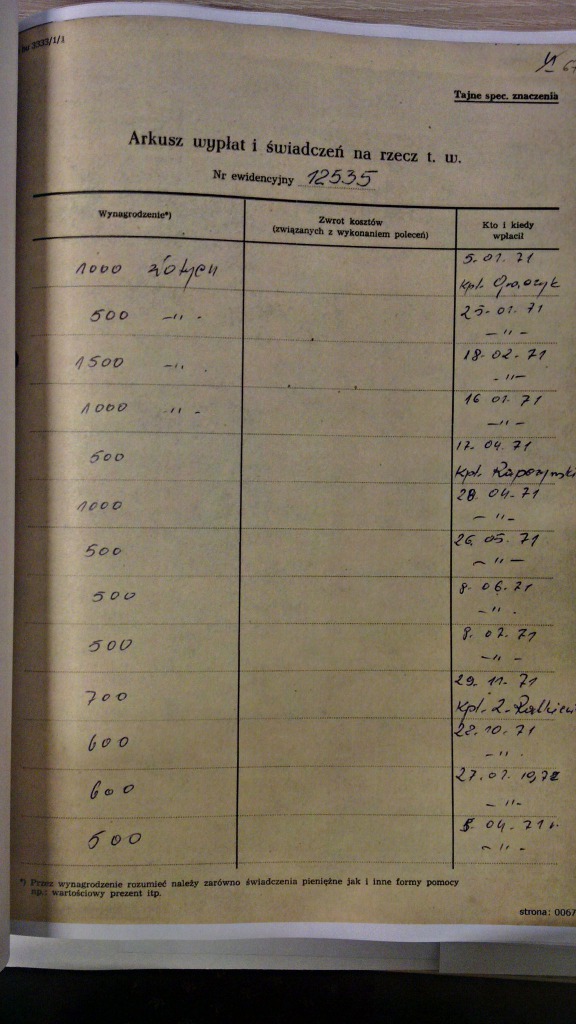 bu 3333/1/1
Tajne spec. znaczenia
Arkusz wypłat i świadczeń na rzecz t. w.
Nr ewidencyjny 12535
Wynagrodzenie*)
Zwrot kosztów
(związanych z wykonaniem poleceń)
Kto i kiedy
wpłacił
1000 złotych
5. 01. 71
kpt.
500 -"-
25. 01. 71
-"-
1500 -"-
18. 02. 71
-"-
1000 -"-
16 01. 71
-"-
500
17. 04. 71
kpt.
1000
28. 04. 71
-"-
500
26. 05. 71
-"-
500
8. 06. 71
-"-
500
8. 07. 71
-"-
700
29. 11. 71
kpt.
600
28. 10. 71
-"-
600
27. 01. 1972
-"-
500
04. 71 r.
-"-
*) Przez wynagrodzenie rozumieć należy zarówno świadczenia pieniężne jak i inne formy pomocy
np.: wartościowy prezent itp.
strona: 0067